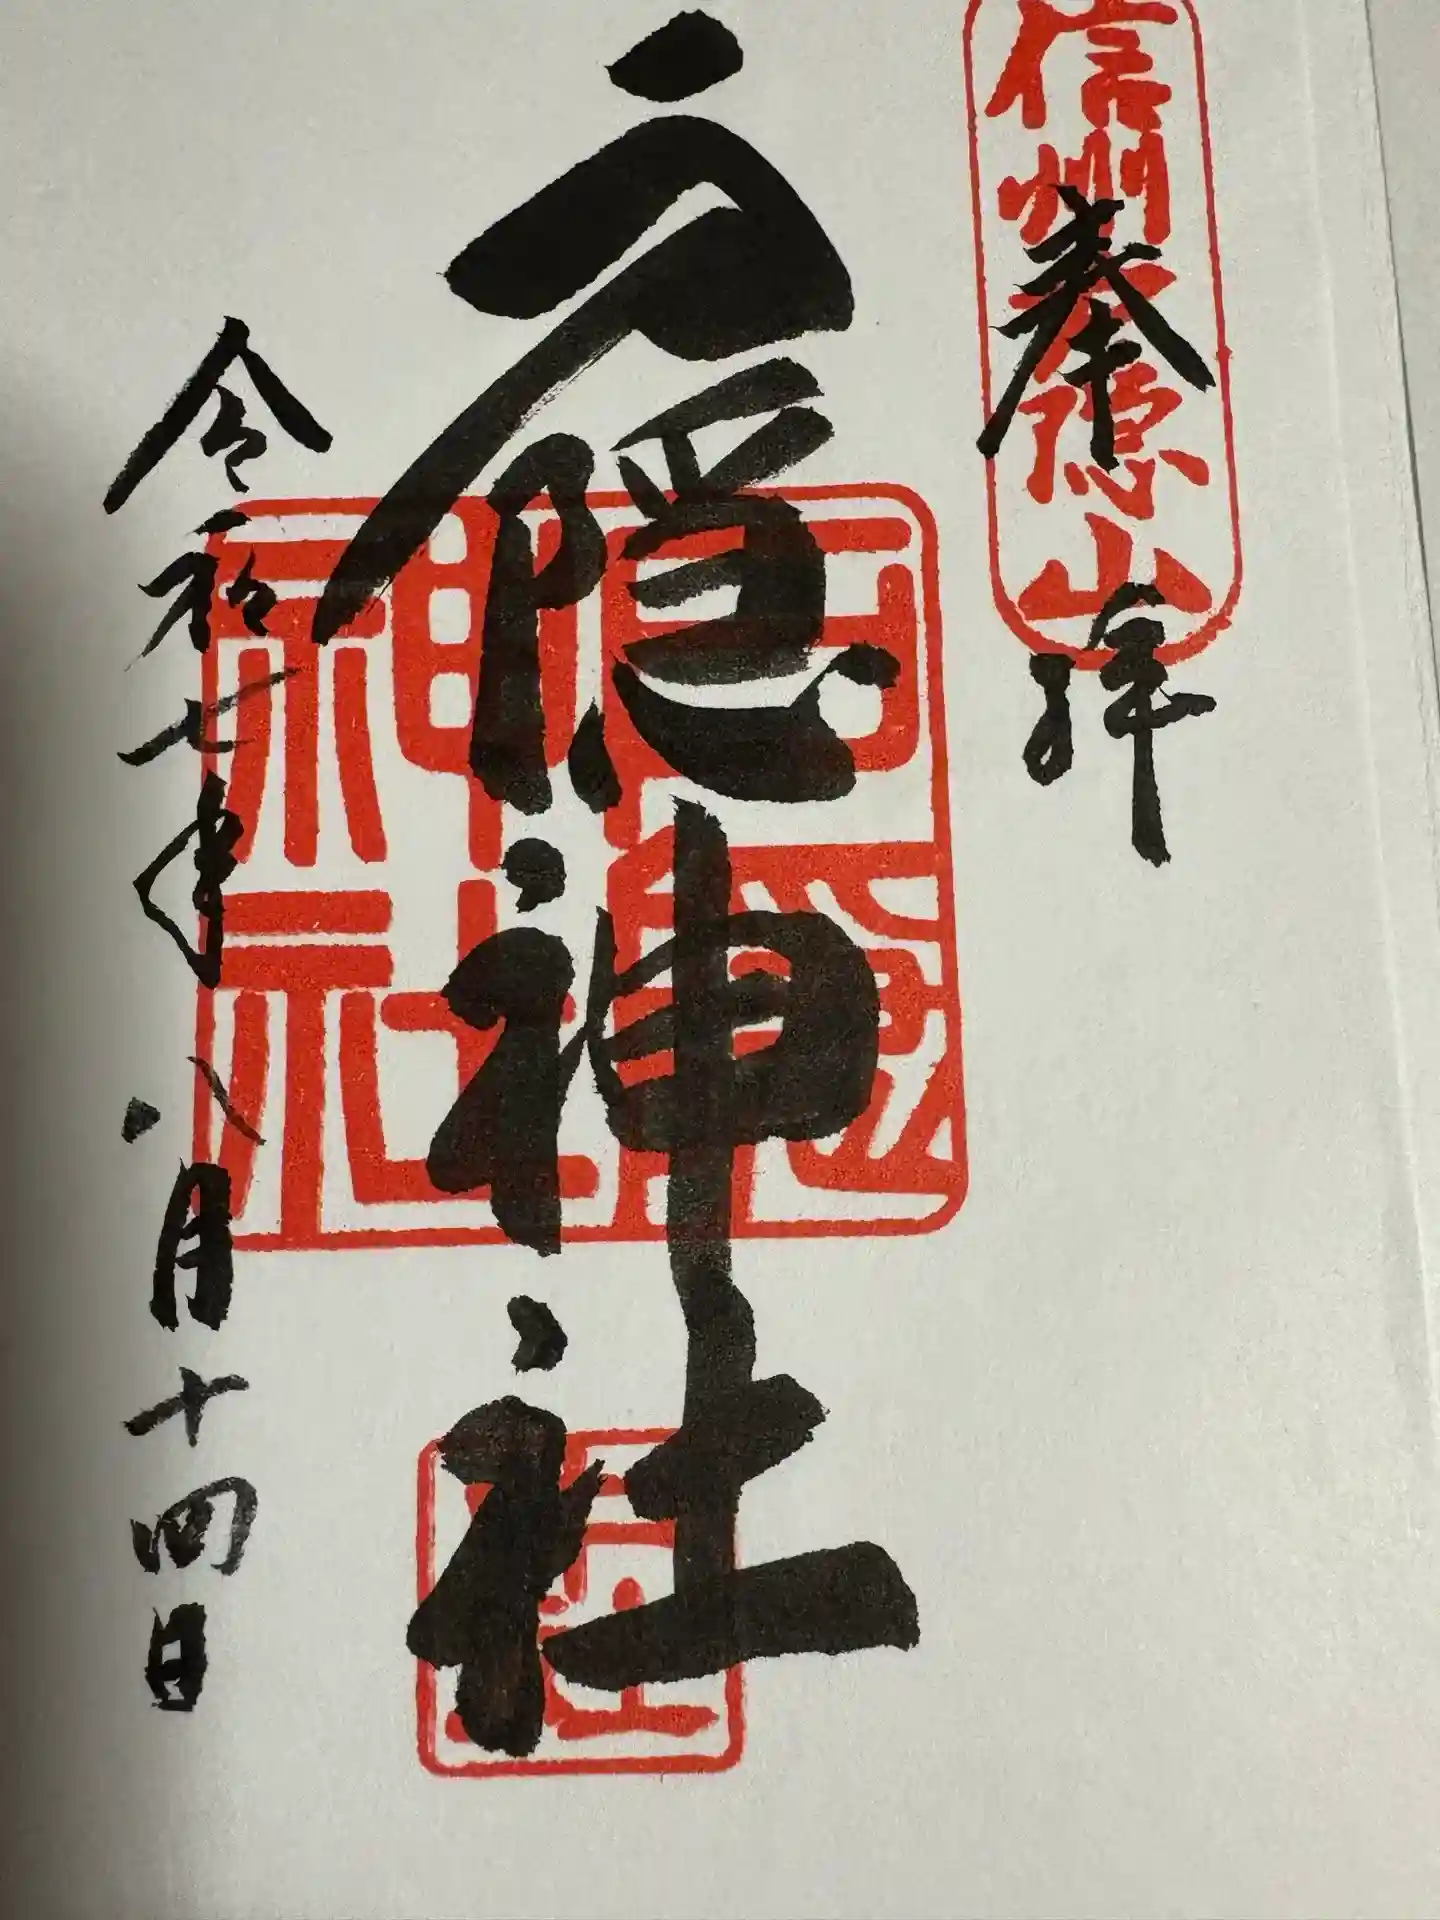 信州戸隠山
奉拝
戸隠神社
戸隠
神社
令和七年八月十四日